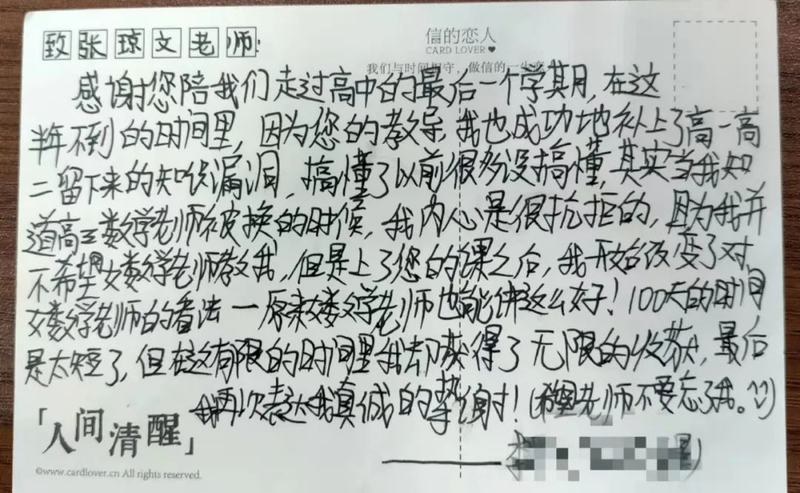 致张琼文老师:
信的恋人
CARD LOVER
我们与时间相守，做信的一生恋
感谢您陪我们走过高中的最后一个学期，在这
半年不到的时间里，因为您的教导，我也成功地补上了高一高
二留下来的知识漏洞，搞懂了以前很多没搞懂，其实当我知
道高三数学老师被换的时候，我内心是很抗拒的，因为我并
不希望女数学老师教我，但是上了您的课之后，我开始改变了对
女数学老师的看法——原来女数学老师也能讲这么好！100天的时间
是太短了，但在这有限的时间里我却获得了无限的收获，最后
我再次表达我真诚的挚谢！(希望老师不要忘了我。
「人间清醒」
©www.cardlover.cn All rights reserved.